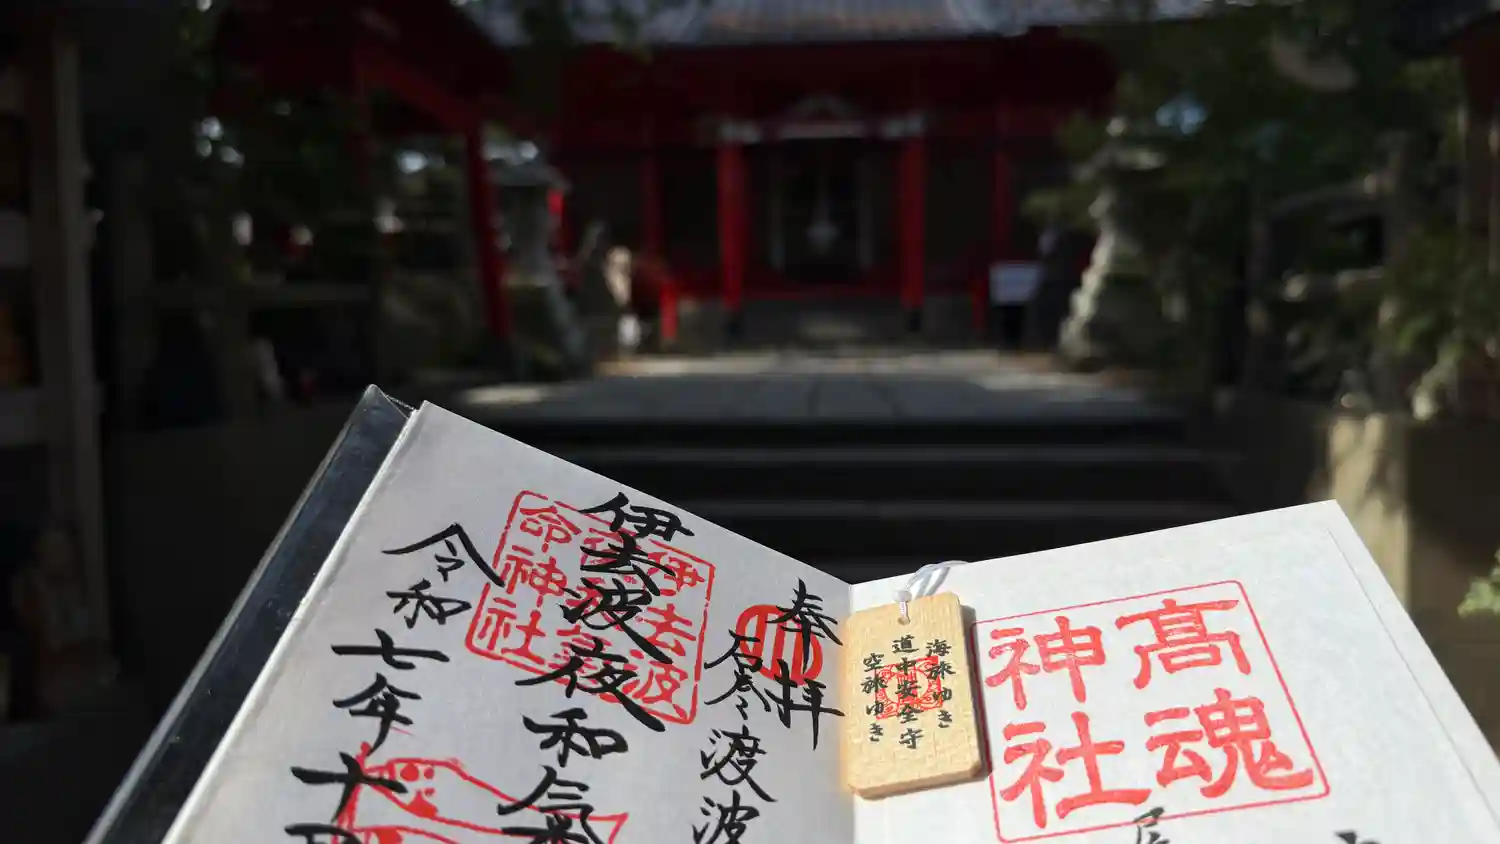 高魂
神社
海旅ゆき
道中安全守
空旅ゆき
奉拝
石巻渡波
伊去波夜和氣
伊去波
命神社
令和七年十